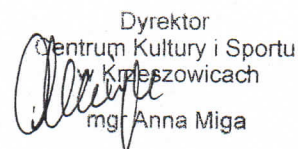 Dyrektor
Centrum Kultury i Sportu
w Krzeszowicach
mgr Anna Miga